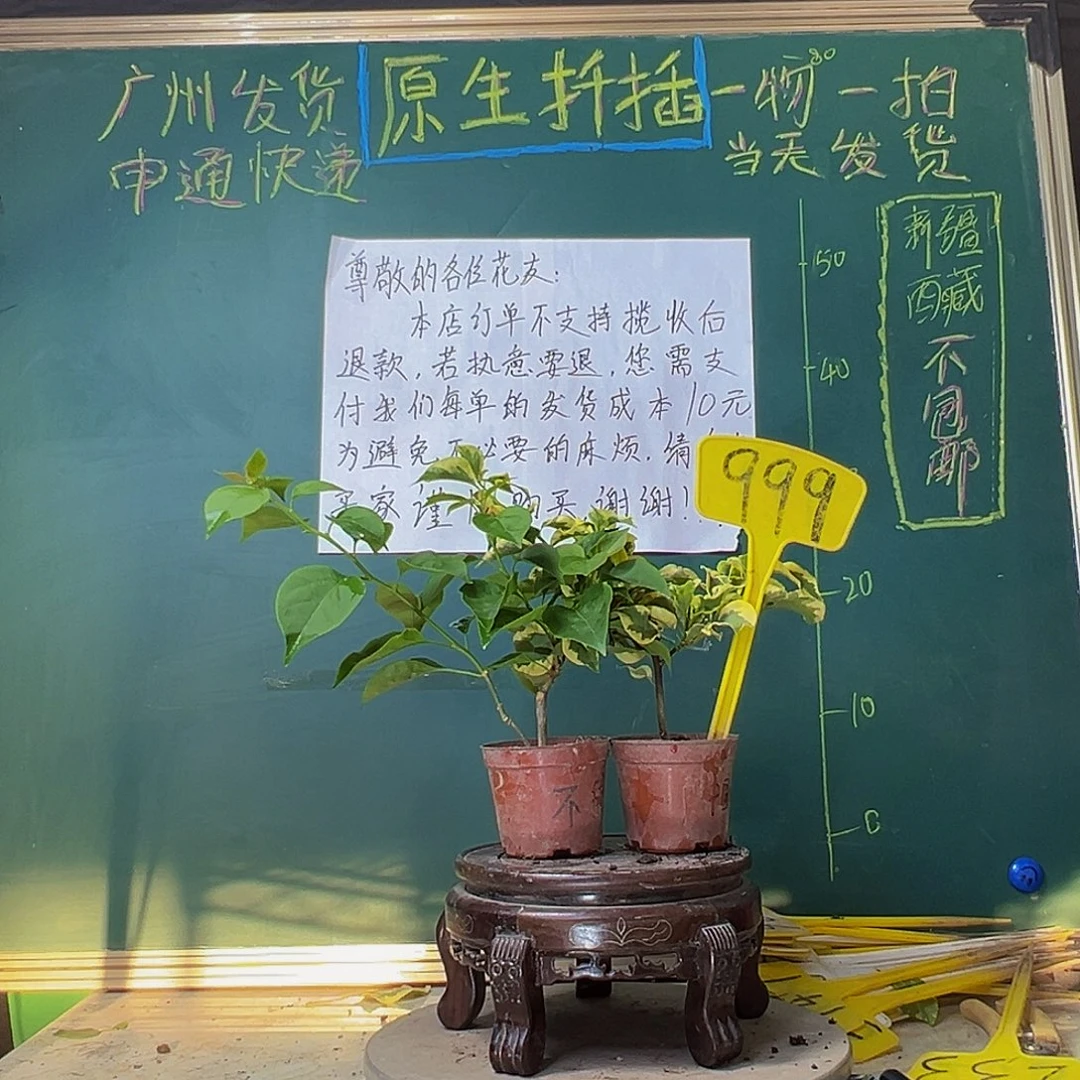 广州发货
申通快递
原生扦插
一物一拍
当天发货
新疆
西藏
不
包
邮
50
40
20
10
0
尊敬的各位花友:
本店订单不支持揽收后
退款,若执意要退,您需支
付我们每单的发货成本10元
为避免不必要的麻烦,请
买家谨 购买 谢谢!!
999
不